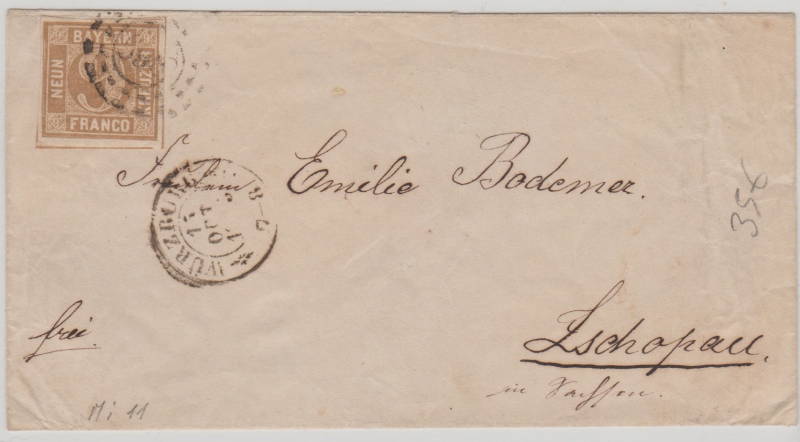 BAYERN
NEUN
9
KREUZER
FRANCO
Fräulein Emilie Bodemer.
WÜRZBURG
12
OCT
35€
frei.
Zschopau.
in Sachsen.
Mi 11